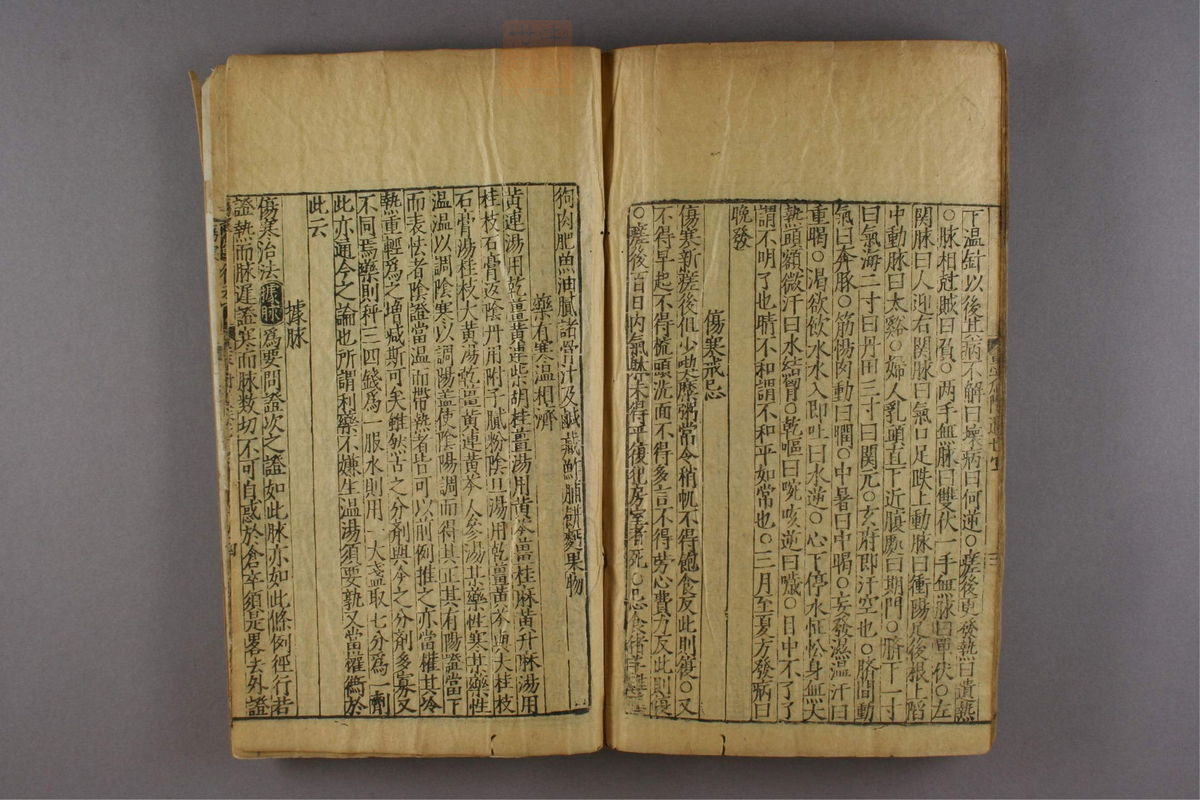 下温針以後止病不解曰壞病曰何逆○瘥後更發熱曰遺熱
○脉相過賊曰䫈○兩手無脉曰雙伏一手無脉曰單伏○左
関脉曰人迎右関脉曰氣口足趺上動脉曰衝陽足後根上陷
中動脉曰太谿○婦人乳頭直下近臆處曰期門○臍下一寸
曰氣海二寸曰丹田三寸曰関元○玄府即汗空也○臍間動
氣曰奔豚○筋惕肉動曰瞤○中暑曰中暍○妄發濕温汗曰
重暍○渴欲飲水水入即吐曰水逆○心下停水怔忪身無大
熱頭額微汗曰水結胷○乾嘔曰啘咳逆曰噦○目中不了了
謂不明了也睛不和謂不和平如常也○三月至夏方發病曰
晩發
傷寒戒忌
傷寒新瘥後但少喫糜粥常令稍飢不得飽食反此則復○又
不得早起不得梳頭洗面不得多言不得勞心費力反此則復
○瘥後百日内氣脉未得平復犯房室者死○忌食猪羊
狗肉肥魚油膩諸骨汁及鹹藏鮓脯餅麪果物
藥有寒温相濟
黄連湯用乾薑黄連柴胡桂薑湯用黄芩薑桂麻黄升麻湯用
桂枝石膏返陰丹用附子膩粉陰旦湯用乾薑黄芩與大桂枝
石膏湯桂枝大黄湯乾薑黄連黄芩人參湯某藥性寒某藥性
温温以調陰寒以調陽盖使陰陽調而得其正其有陽證當下
而表怯者陰證當温而帶熱者皆可以前例推之亦當權其冷
熱重輕爲之增減斯可矣雖然古之分劑與今之分劑多寡又
不同焉藥則秤三四錢爲一服水則用一大盞取七分爲一劑
此亦通今之論也所謂利藥不嫌生温湯須要孰又當權衡於
此云
據脉
傷寒治法據脉爲要問證次之證如此脉亦如此條例徑行若
證熱而脉遲證寒而脉数切不可自惑於倉卒須是畧去外證